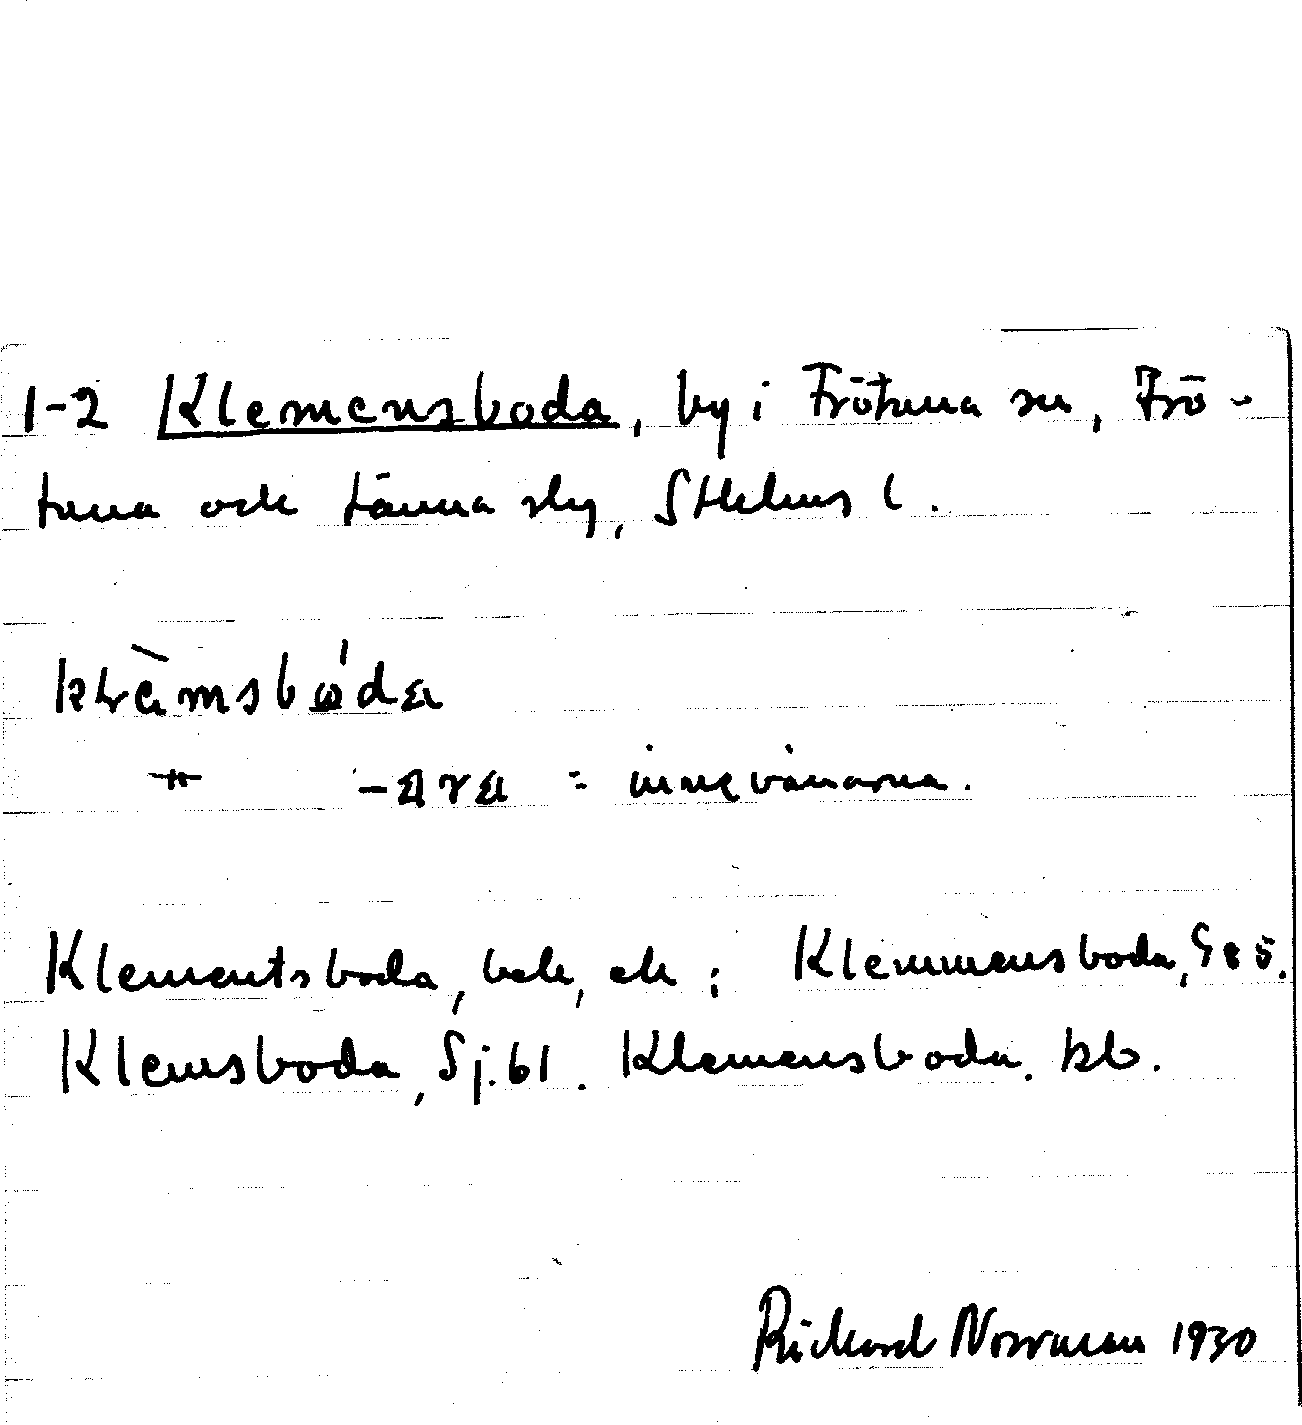 1-2 Klemensboda, by i Frötuna sn, Frö-
tuna och Länna skg, Sthlms l.
klèmsbo̍da
-"- -ara = innevånarna.
Klementsboda, bok, ek; Klemmensboda, G85.
Klemsboda, Sj. bl. Klemensboda. kb.
Rickard Norrman 1930